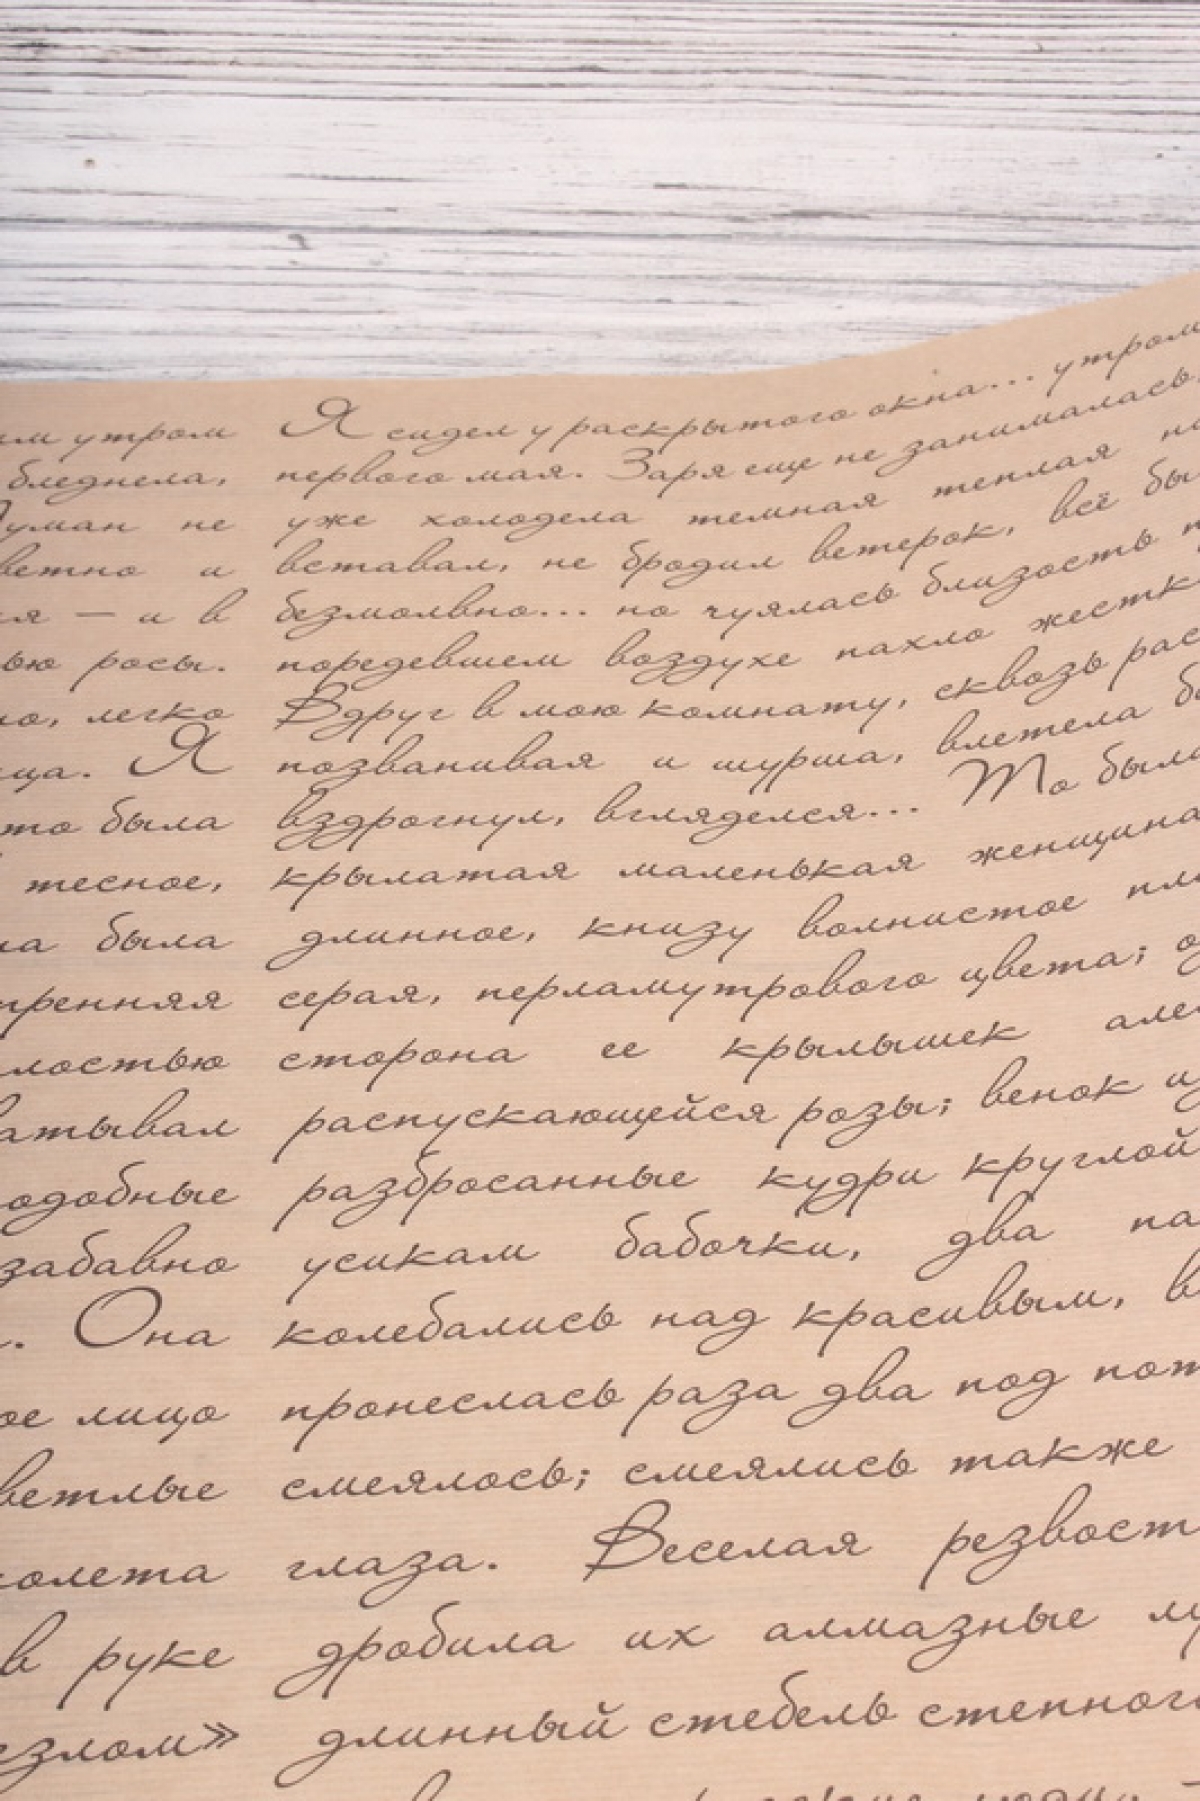 им утром
бледнела,
Туман не
ветно и
ся — и в
ью росы.
но, легко
ица. Я
то была
тесное,
на была
тренняя
лостью
атывал
одобные
забавно
. Она
ое лицо
ветлые
олета
в руке
езлом»
Я сидел у раскрытого окна... утром
первого мая. Заря еще не занималась;
уже холодела темная теплая но
вставал, не бродил ветерок, всё бы
безмолвно... но чуялась близость
поредевшем воздухе пахло жестк
Вдруг в мою комнату, сквозь рас
позванивая и шурша, влетела бо
вздрогнул, вгляделся... То была
крылатая маленькая женщина
длинное, книзу волнистое пла
серая, перламутрового цвета; о
сторона ее крылышек але
распускающейся розы; венок из
разбросанные кудри круглой
усикам бабочки, два па
колебались над красивым, в
пронеслась раза два под пот
смеялось; смеялись также
глаза. Веселая резвост
дробила их алмазные лу
длинный стебель степного